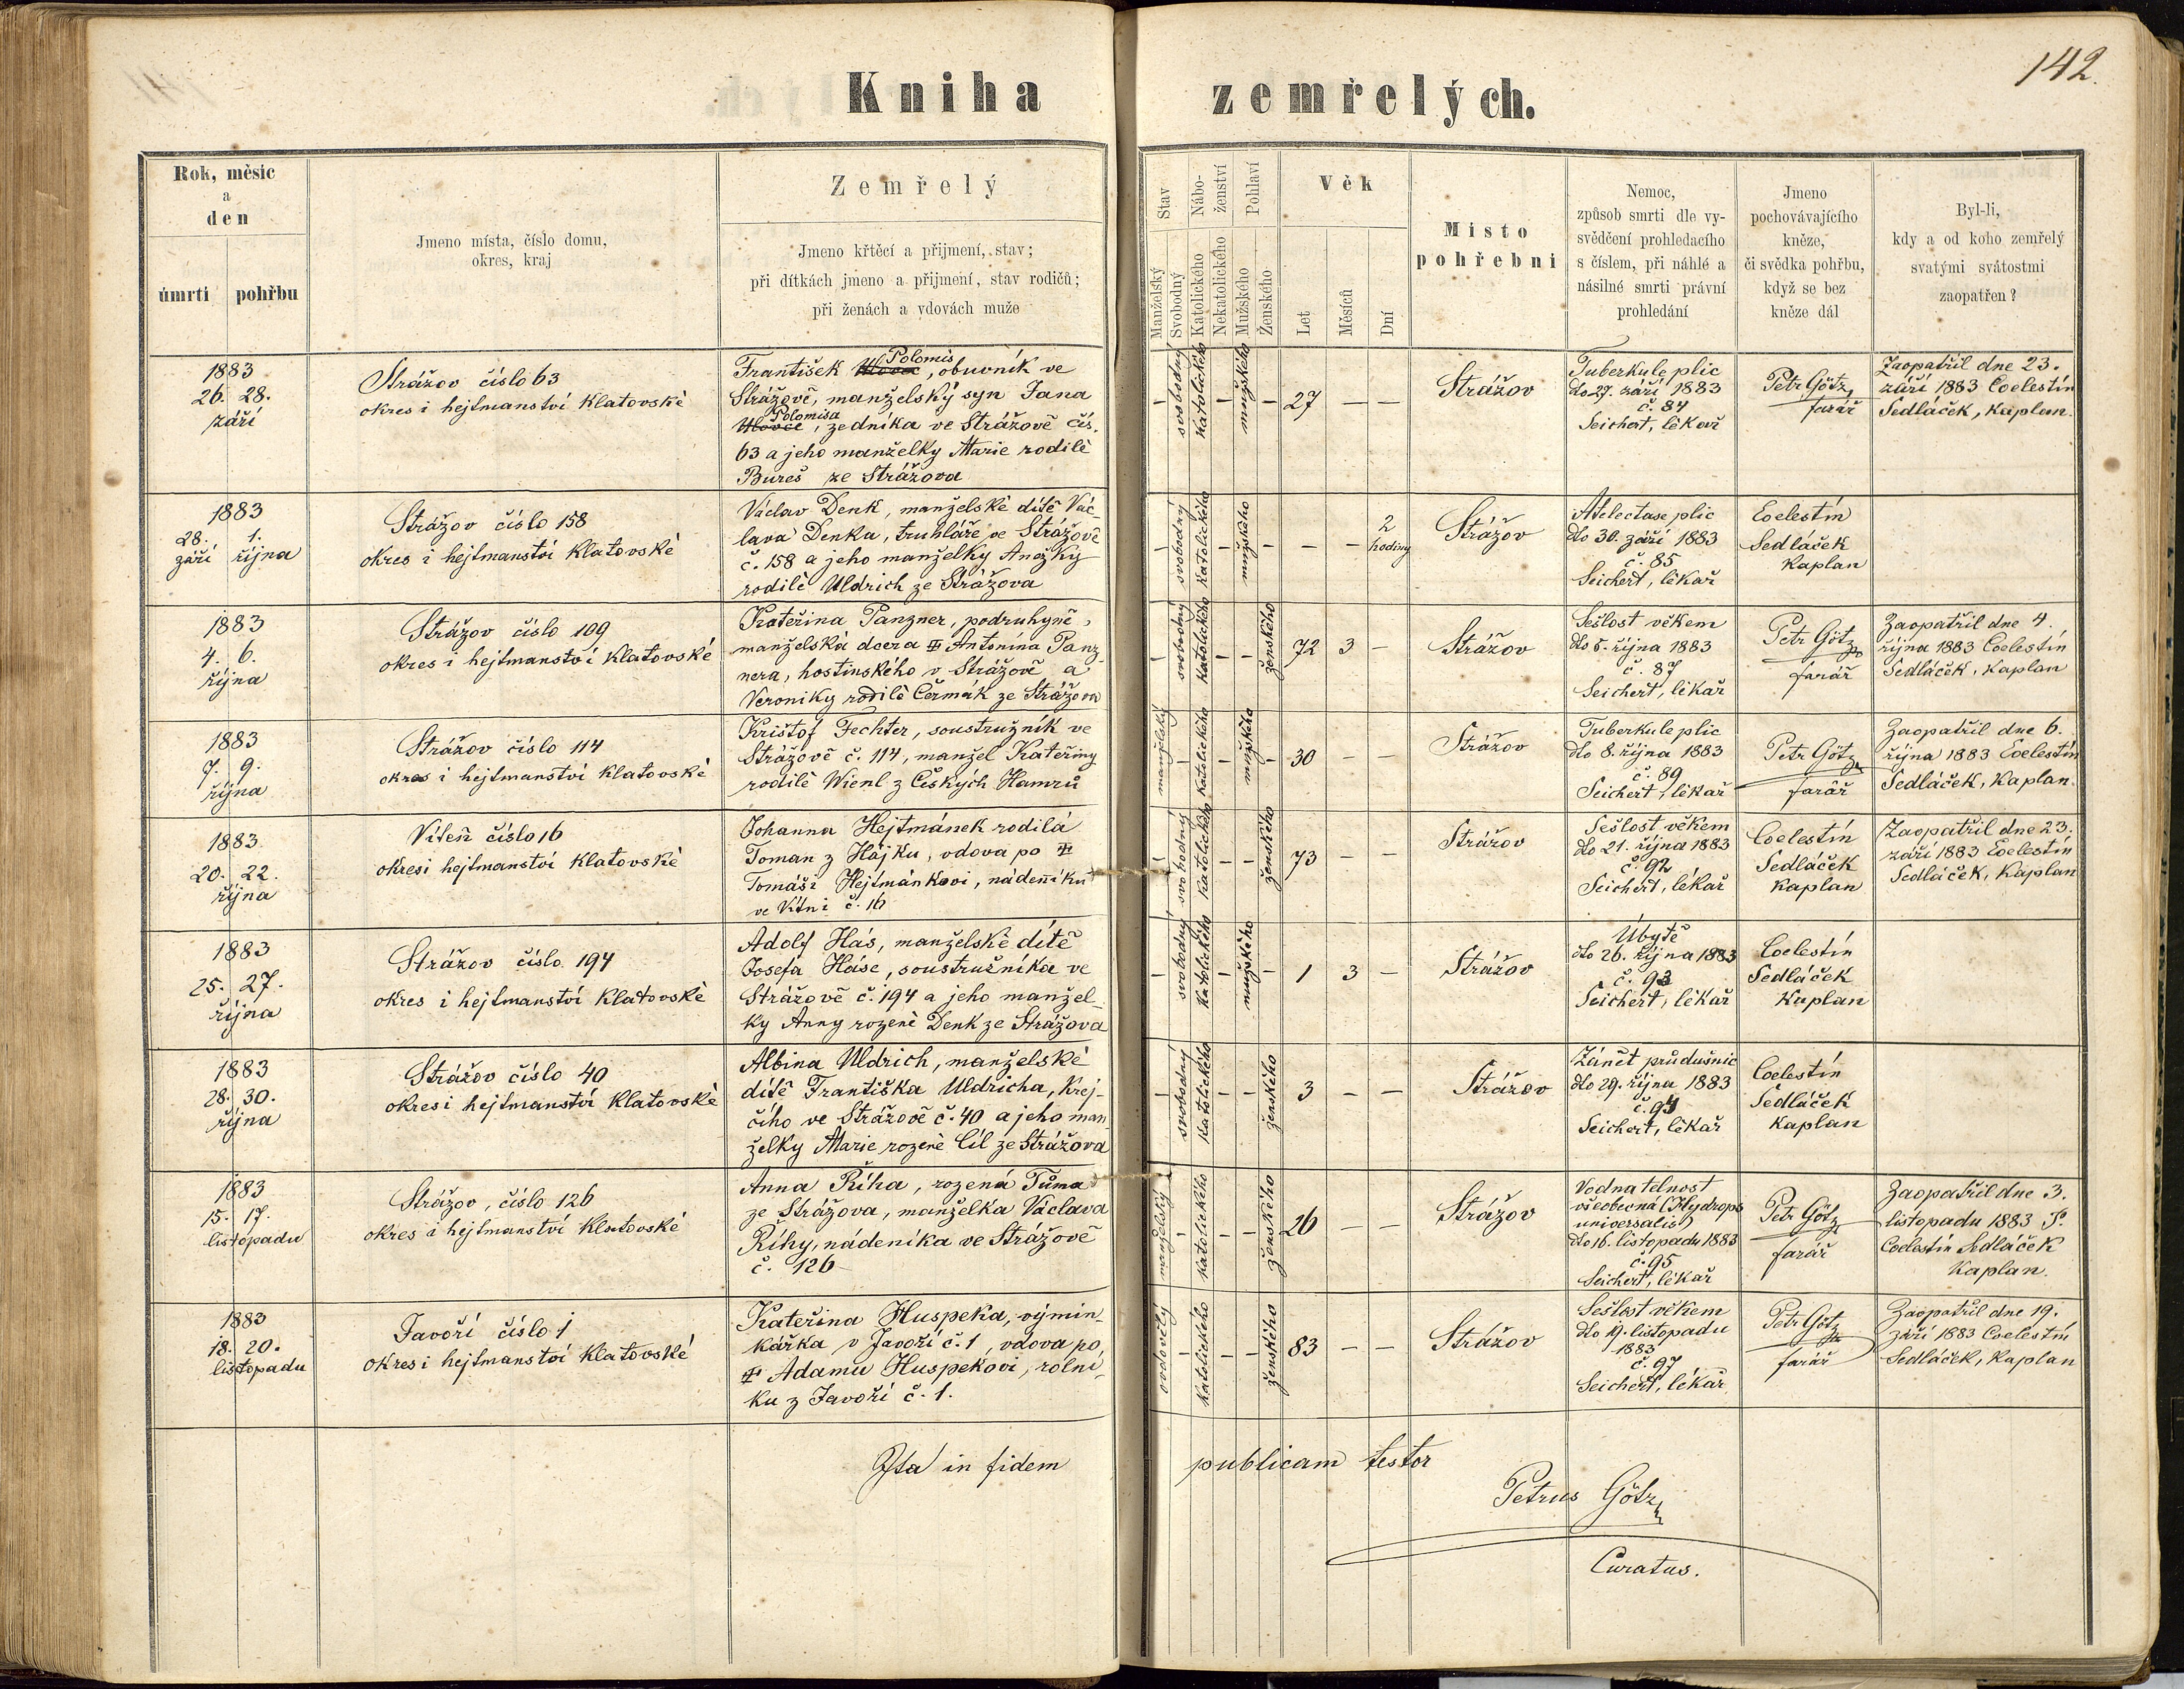 142.
Kniha zemřelých.
Rok, měsíc
a
den
úmrtí pohřbu
Jmeno místa, číslo domu,
okres, kraj
Zemřelý
Jmeno křtěcí a přijmení, stav;
při dítkách jmeno a přijmení, stav rodičů;
při ženách a vdovách muže
Stav
Manželský
Svobodný
Nábo-
ženství
Katolického
Nekatolického
Pohlaví
Mužského
Ženského
Věk
Let
Měsíců
Dní
Místo
pohřební
Nemoc,
způsob smrti dle vy-
svědčení prohledacího
s číslem, při náhlé a
násilné smrti právní
prohledání
Jmeno
pochovávajícího
kněze,
či svědka pohřbu,
když se bez
kněze dál
Byl-li,
kdy a od koho zemřelý
svatými svátostmi
zaopatřen?
1883
26. 28.
září
Strážov číslo 63
okres i hejtmanství Klatovské
Polomis
František, obuvník ve
Strážově, manželský syn Jana
Polomisa
, zedníka ve Strážově čís.
63 a jeho manželky Marie rodilé
Bureš ze Strážova
– svobodný katolického – mužského – 27 – –
Strážov
Tuberkule plic
dto 27. září 1883
č. 84
Seichert, lékař
Petr Götz
farář
Zaopatřil dne 23.
září 1883 Coelestín
Sedláček, kaplan.
1883
28. 1.
září října
Strážov číslo 158
okres i hejtmanství Klatovské
Václav Denk, manželské dítě Vác-
lava Denka, truhláře ve Strážově
č. 158 a jeho manželky Anežky
rodilé Uldrich ze Strážova
– svobodný katolického – mužského – – – 2
hodiny
Strážov
Atelectase plic
dto 30. září 1883
č. 85
Seichert, lékař
Coelestín
Sedláček
kaplan
1883
4. 6.
října
Strážov číslo 109
okres i hejtmanství Klatovské
Kateřina Panzner, podruhyně,
manželská dcera ✠ Antonína Panz-
nera, hostinského v Strážově a
Veroniky rodilé Čermák ze Strážova
– svobodný katolického – – ženského 72 3 –
Strážov
Sešlost věkem
dto 5. října 1883
č. 87
Seichert, lékař
Petr Götz
farář
Zaopatřil dne 4.
října 1883 Coelestín
Sedláček, kaplan
1883
7. 9.
října
Strážov číslo 114
okres i hejtmanství Klatovské
Krištof Fechter, soustružník ve
Strážově č. 114, manžel Kateřiny
rodilé Wienl z Českých Hamrů
manželský – katolického – mužského – 30 – –
Strážov
Tuberkule plic
dto 8. října 1883
č. 89
Seichert, lékař
Petr Götz
farář
Zaopatřil dne 6.
října 1883 Coelestín
Sedláček, kaplan.
1883
20. 22.
října
Víteň číslo 16
okres i hejtmanství Klatovské
Johanna Hejtmánek rodilá
Toman z Hájku, vdova po ✠
Tomáši Hejtmánkovi, nádeníku
ve Vítni č. 16
– svobodný katolického – – ženského 73 – –
Strážov
Sešlost věkem
dto 21. října 1883
č. 92
Seichert, lékař
Coelestín
Sedláček
kaplan
Zaopatřil dne 23.
září 1883 Coelestín
Sedláček, kaplan
1883
25. 27.
října
Strážov číslo 194
okres i hejtmanství Klatovské
Adolf Hás, manželské dítě
Josefa Háse, soustružníka ve
Strážově č. 194 a jeho manžel-
ky Anny rozené Denk ze Strážova
– svobodný katolického – mužského – 1 3 –
Strážov
Úbytě
dto 26. října 1883
č. 93
Seichert, lékař
Coelestín
Sedláček
kaplan
1883
28. 30.
října
Strážov číslo 40
okres i hejtmanství Klatovské
Albina Uldrich, manželské
dítě Františka Uldricha, krej-
čího ve Strážově č. 40 a jeho man-
želky Marie rozené Cíl ze Strážova
– svobodný katolického – – ženského 3 – –
Strážov
Zánět průdušnic
dto 29. října 1883
č. 94
Seichert, lékař
Coelestín
Sedláček
kaplan
1883
15. 17.
listopadu
Strážov, číslo 126
okres i hejtmanství Klatovské
Anna Říha, rozená Tůma
ze Strážova, manželka Václava
Říhy, nádeníka ve Strážově
č. 126
manželský – katolického – – ženského 26 – –
Strážov
Vodnatelnost
všeobecná (Hydrops
universalis)
dto 16. listopadu 1883
č. 95
Seichert, lékař
Petr Götz
farář
Zaopatřil dne 3.
listopadu 1883 P.
Coelestín Sedláček
kaplan.
1883
18. 20.
listopadu
Javoří číslo 1
okres i hejtmanství Klatovské
Kateřina Huspeka, výmin-
kářka v Javoří č. 1, vdova po
✠ Adamu Huspekovi, rolní-
ku z Javoří č. 1.
ovdovělý – katolického – – ženského 83 – –
Strážov
Sešlost věkem
dto 19. listopadu
1883
č. 97
Seichert, lékař
Petr Götz
farář
Zaopatřil dne 19.
září 1883 Coelestín
Sedláček, kaplan
Ita in fidem publicam testor
Petrus Götz
Curatus.